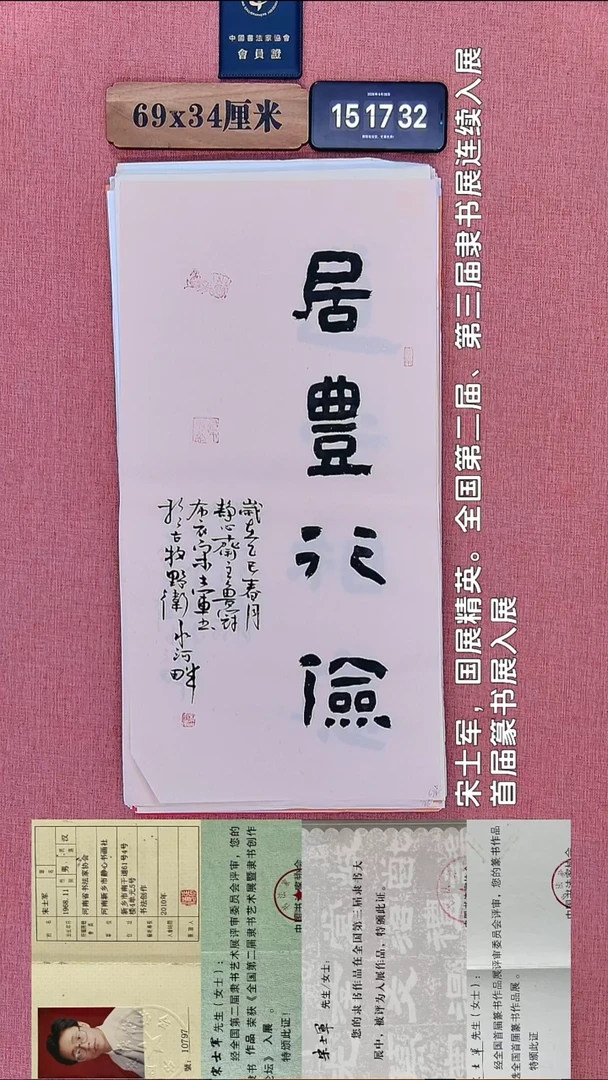 中國書法家協會
會員證
69x34厘米
15 17 32
居豊行儉
歲在乙巳春月
静心齋主
布衣宋士軍書
於古牧野衛水河畔
宋士军，国展精英。全国第二届、第三届隶书展连续入展
首届篆书展入展
宋士军
男
汉
1968.11
河南省书法家协会
河南新乡市静心书画社
新乡市南干道61号4号
楼4单元5号
书法创作
2010年
號：10797
宋士军 先生（女士）：
经全国第二届隶书艺术展评审委员会评审，您的
隶书 作品 荣获《全国第二届隶书艺术展暨隶书创作
论坛》 入展 。
特颁此证！
宋士军 先生/女士：
您的隶书作品在全国第三届隶书大
展中，被评为入展作品，特颁此证。
士军 先生（女士）：
经全国首届篆书作品展评审委员会评审，您的篆书作品
全国首届篆书作品展。
特颁此证